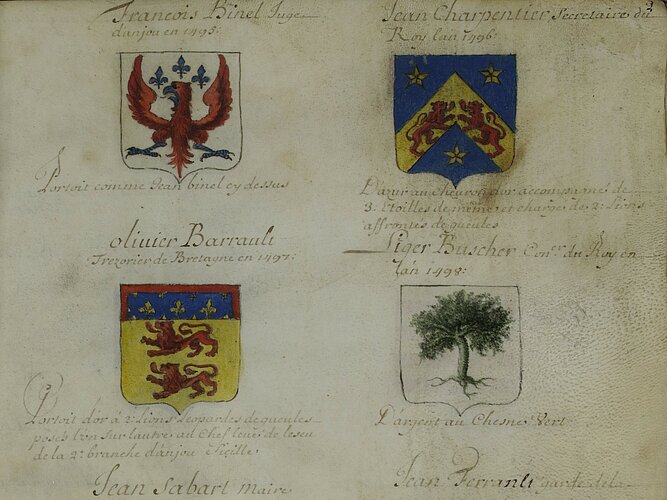 Francois Binel Juge
danjou en 1495:
Portoit comme Jean binel cy dessus
Jean Charpentier Secretaire du
Roy lan 1496:
D'azur au cheuron d'or accompagné de
3. Etoilles de mème et chargé de 2. Lions
affrontés de gueules
olivier Barrault
Trezorier de Bretagne en 1497:
Portoit d'or à 2. Lions Leopardés de gueules
posés l'vn sur lautre au Chef leué de lescu
de la 2e. branche danjou Sicille
Liger Buscher Coner. du Roy en
lan 1498:
D'argent au Chesne Vert
Jean Sabart maire
Jean Perrault garde de la